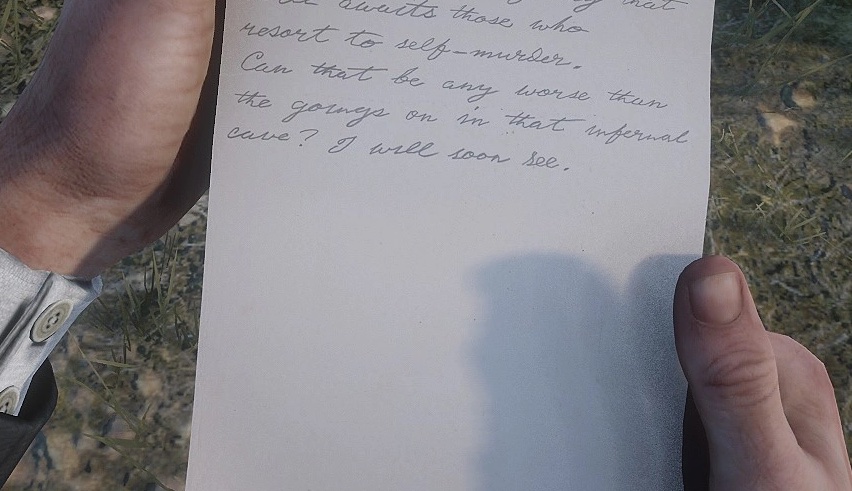 that
awaits those who
resort to self-murder.
Can that be any worse than
the goings on in that infernal
cave? I will soon see.